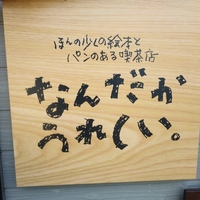 ほんの少しの絵本と
パンのある喫茶店
なんだか
うれしい。